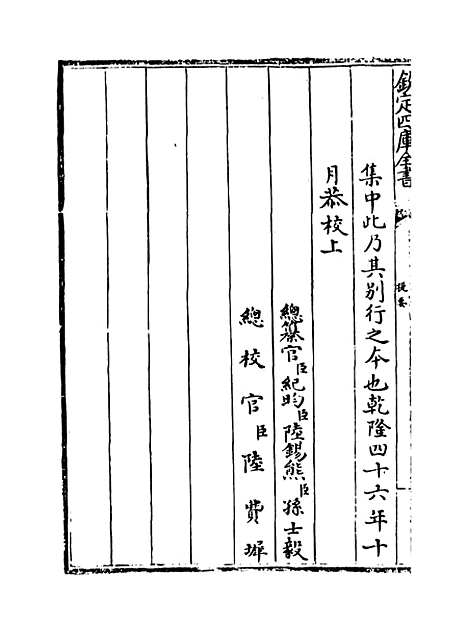 欽定四庫全書
提要
集中此乃其別行之本也乾隆四十六年十
月恭校上
總纂官臣紀昀臣陸錫熊臣孫士毅
總校官臣陸費墀